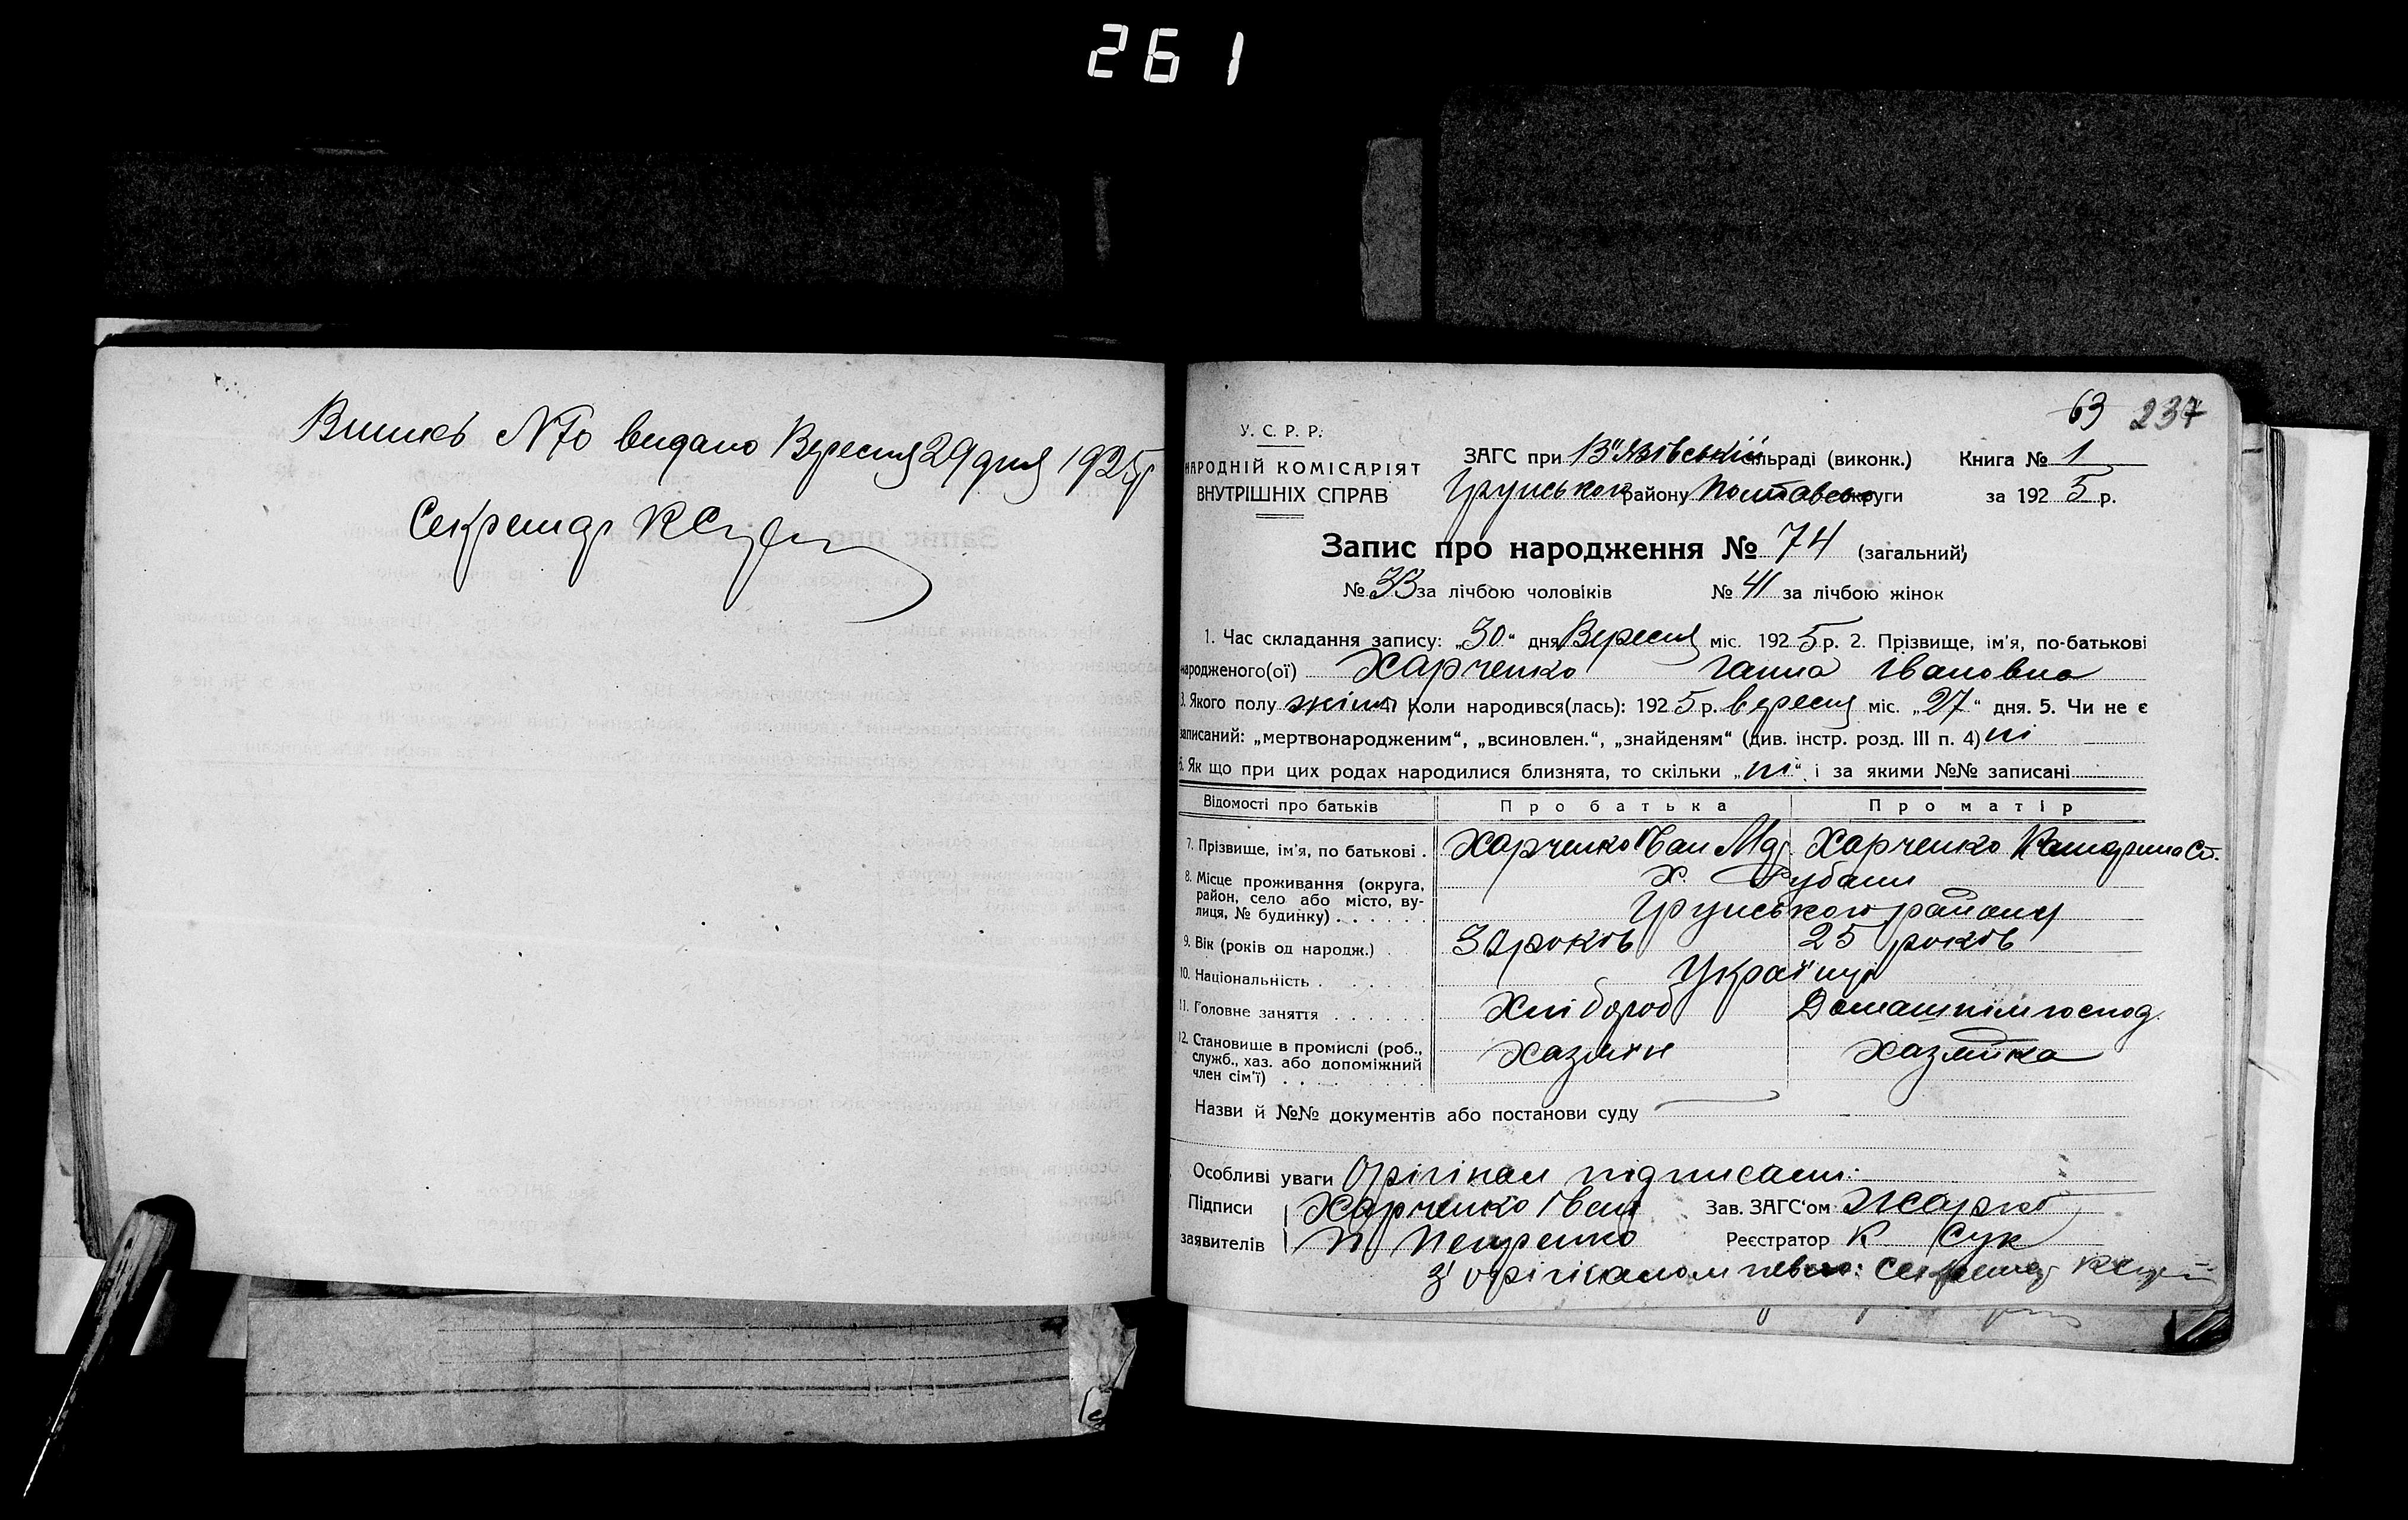 261
Випись №70 видано Вересня 29 дня 1925 р
Секретар КСук
63 237
У. С. Р. Р.
НАРОДНІЙ КОМІСАРІЯТ
ВНУТРІШНІХ СПРАВ
ЗАГС при В'Язівській сільраді (виконк.) Книга № 1
Грунського району Полтавсько округи за 1925 р.
Запис про народження № 74 (загальний)
№ 33 за лічбою чоловіків № 41 за лічбою жінок
1. Час складання запису: „30“ дня Вересня міс. 1925 р. 2. Прізвище, ім'я, по-батькові
народженого(ої) Харченко Ганна Івановна
3. Якого полу жіноч 4. Коли народився(лась): 1925 р. вересня міс. „27“ дня. 5. Чи не є
записаний: „мертвонародженим“, „всиновлен.“, „знайденям“ (див. інстр. розд. III п. 4) ні
6. Як що при цих родах народилися близнята, то скільки „ні“ і за якими №№ записані
Відомості про батьків Про батька Про матір
7. Прізвище, ім'я, по батькові . Харченко Іван Харченко Катерина Ст.
8. Місце проживання (округа, район, село або місто, вулиця, № будинку) . . . . . . х. Рубани
Грунського району
9. Вік (років од народж.) . 30 років 25 років
10. Національність . . . . . . Українці
11. Головне заняття . . . . . . Хлібороб Домашнім господ.
12. Становище в промислі (роб., служб., хаз. або допоміжний член сім'ї) . . . . . . Хазяїн хазяйка
Назви й №№ документів або постанови суду
Особливі уваги Орігінал підписали:
Підписи Харченко Іван Зав. ЗАГС'ом Жарко
заявителів П Петренко Реєстратор К Сук
З орігіналом певно: Секретар КСук